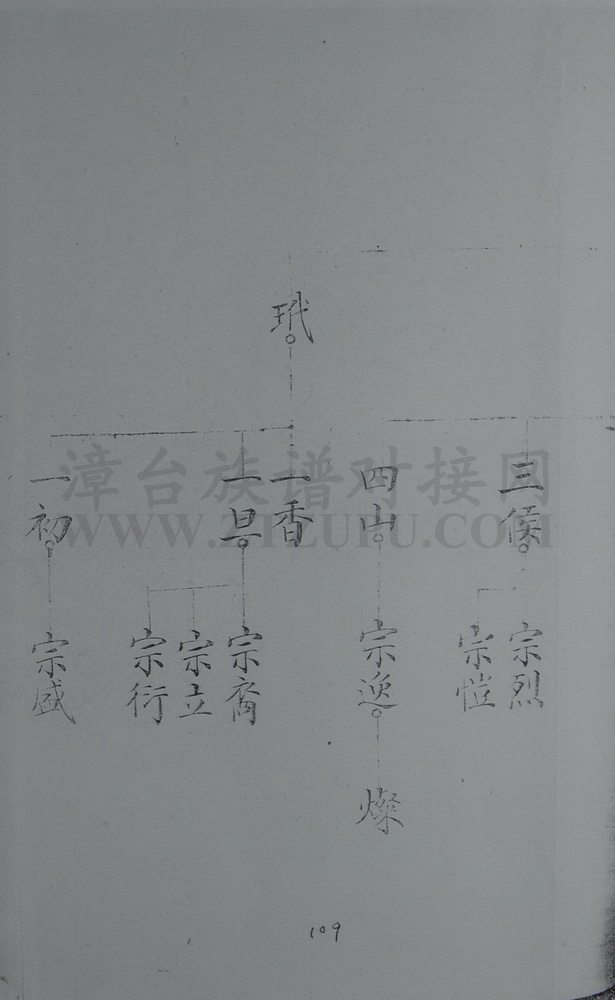 玳
三侯
四山
一香
一旦
一初
宗烈
宗愷
宗逸
宗裔
宗立
宗衍
宗盛
燦
漳台族谱对接网
WWW.ZTZUPU.COM
109